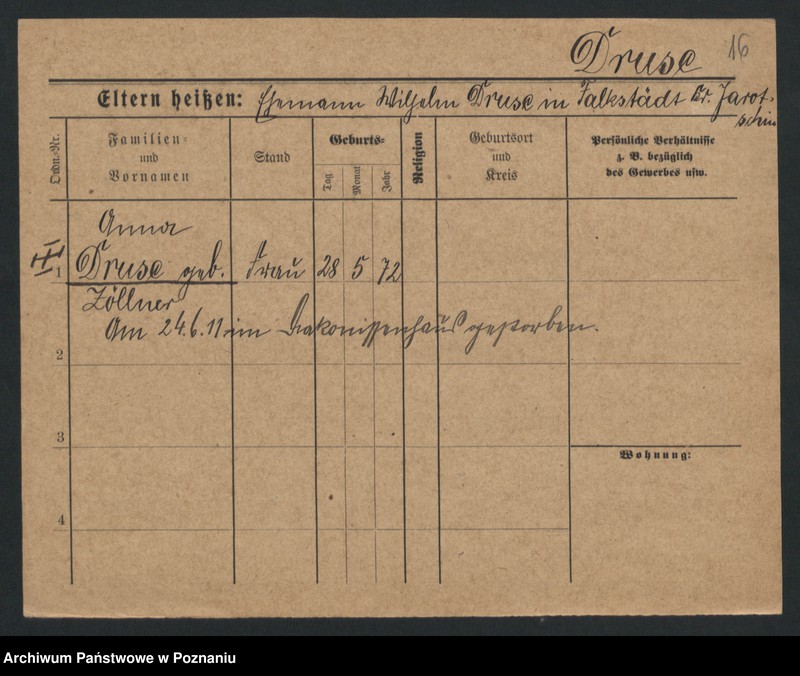 Druse 16
Eltern heißen: Ehemann Wilhelm Druse in Falkstädt Kr. Jarot-
schin
Ordn.-Nr.
Familien-
und
Vornamen
Stand
Geburts-
Tag
Monat
Jahr
Religion
Geburtsort
und
Kreis
Persönliche Verhältnisse
z. B. bezüglich
des Gewerbes usw.
Anna
1 Druse geb. Frau 28 5 72
Zöllner
Am 24.6.11 im Diakonissenhaus gestorben.
2
3
Wohnung:
4
Archiwum Państwowe w Poznaniu